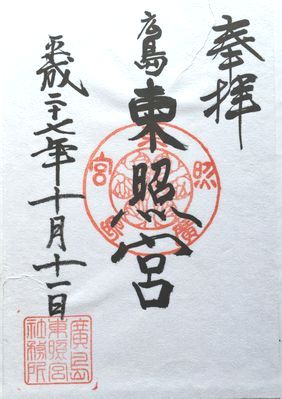 奉拝
広島東照宮
平成二十七年十月十一日
廣島
東照宮
社務所